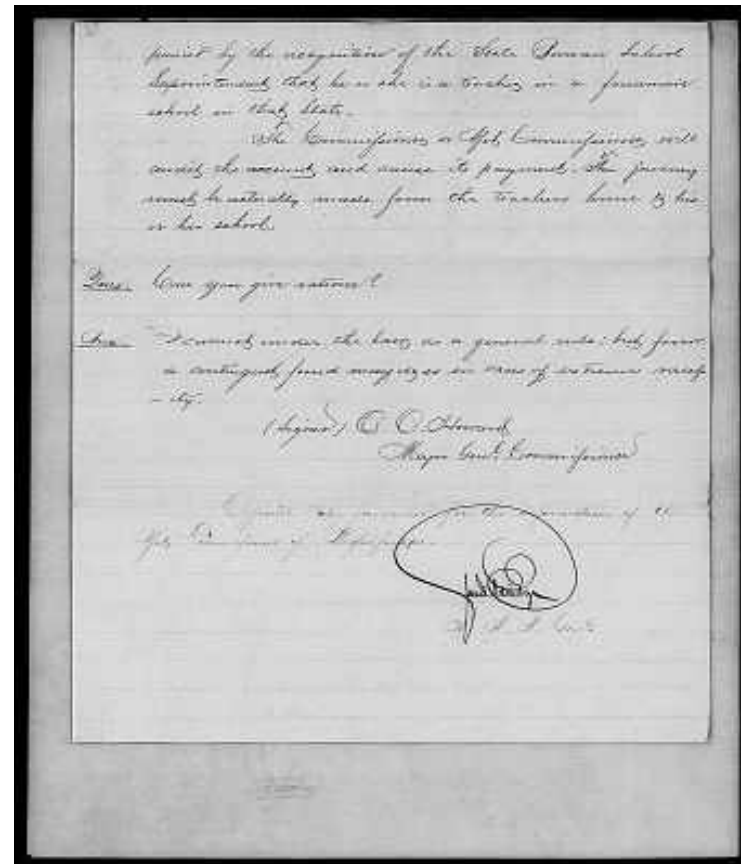 by the recognition of the State Bureau School
Superintendent that he or she is a teacher in a freedmen's
school in that State.
The Commissioner or Asst. Commissioner will
audit the account and cause its payment. The journey
must be actually made from the teachers home to his
or her school.
Ques. Can you give rations?
Ans. I cannot under the law, as a general rule; but from
a contingent fund may do so in case of extreme necess
-ity.
(Signed) O. O. Howard
Major Genl. Commissioner
for the of